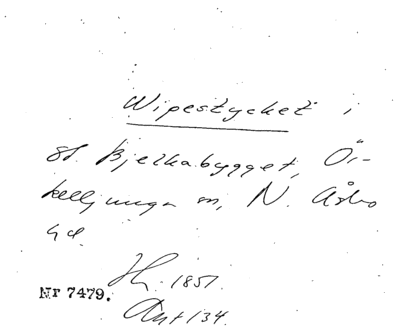 Wipestycket i
St. Bjelkabygget, Ör-
kelljunga sn, N. Åsbo
hd.
1851.
Nr 7479.
Ant 134.